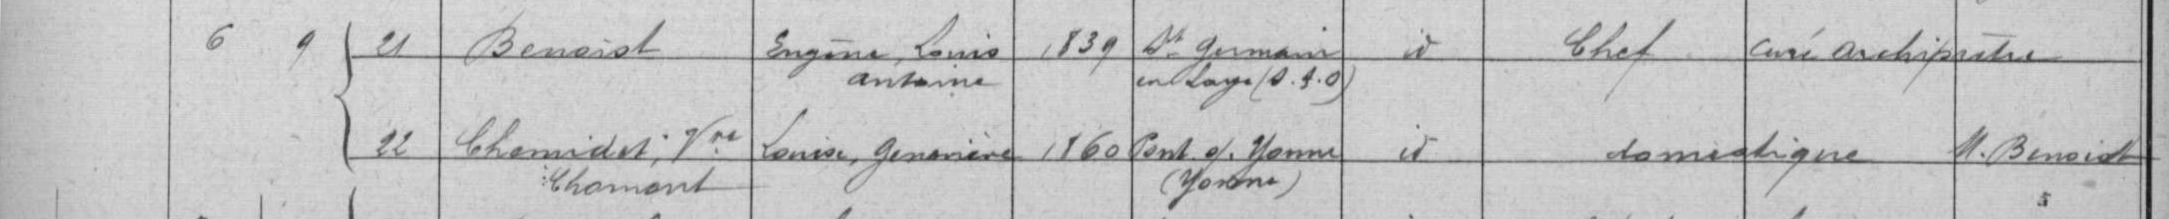 6 9 21 Benoist Eugène, Louis 1839 St Germain id Chef curé archiprêtre
antoine en Laye (S.&.O)
22 Chomidet, Vve Louise, Geneviève 1860 Pont s/. Yonne id domestique M. Benoist
Chomont (Yonne)